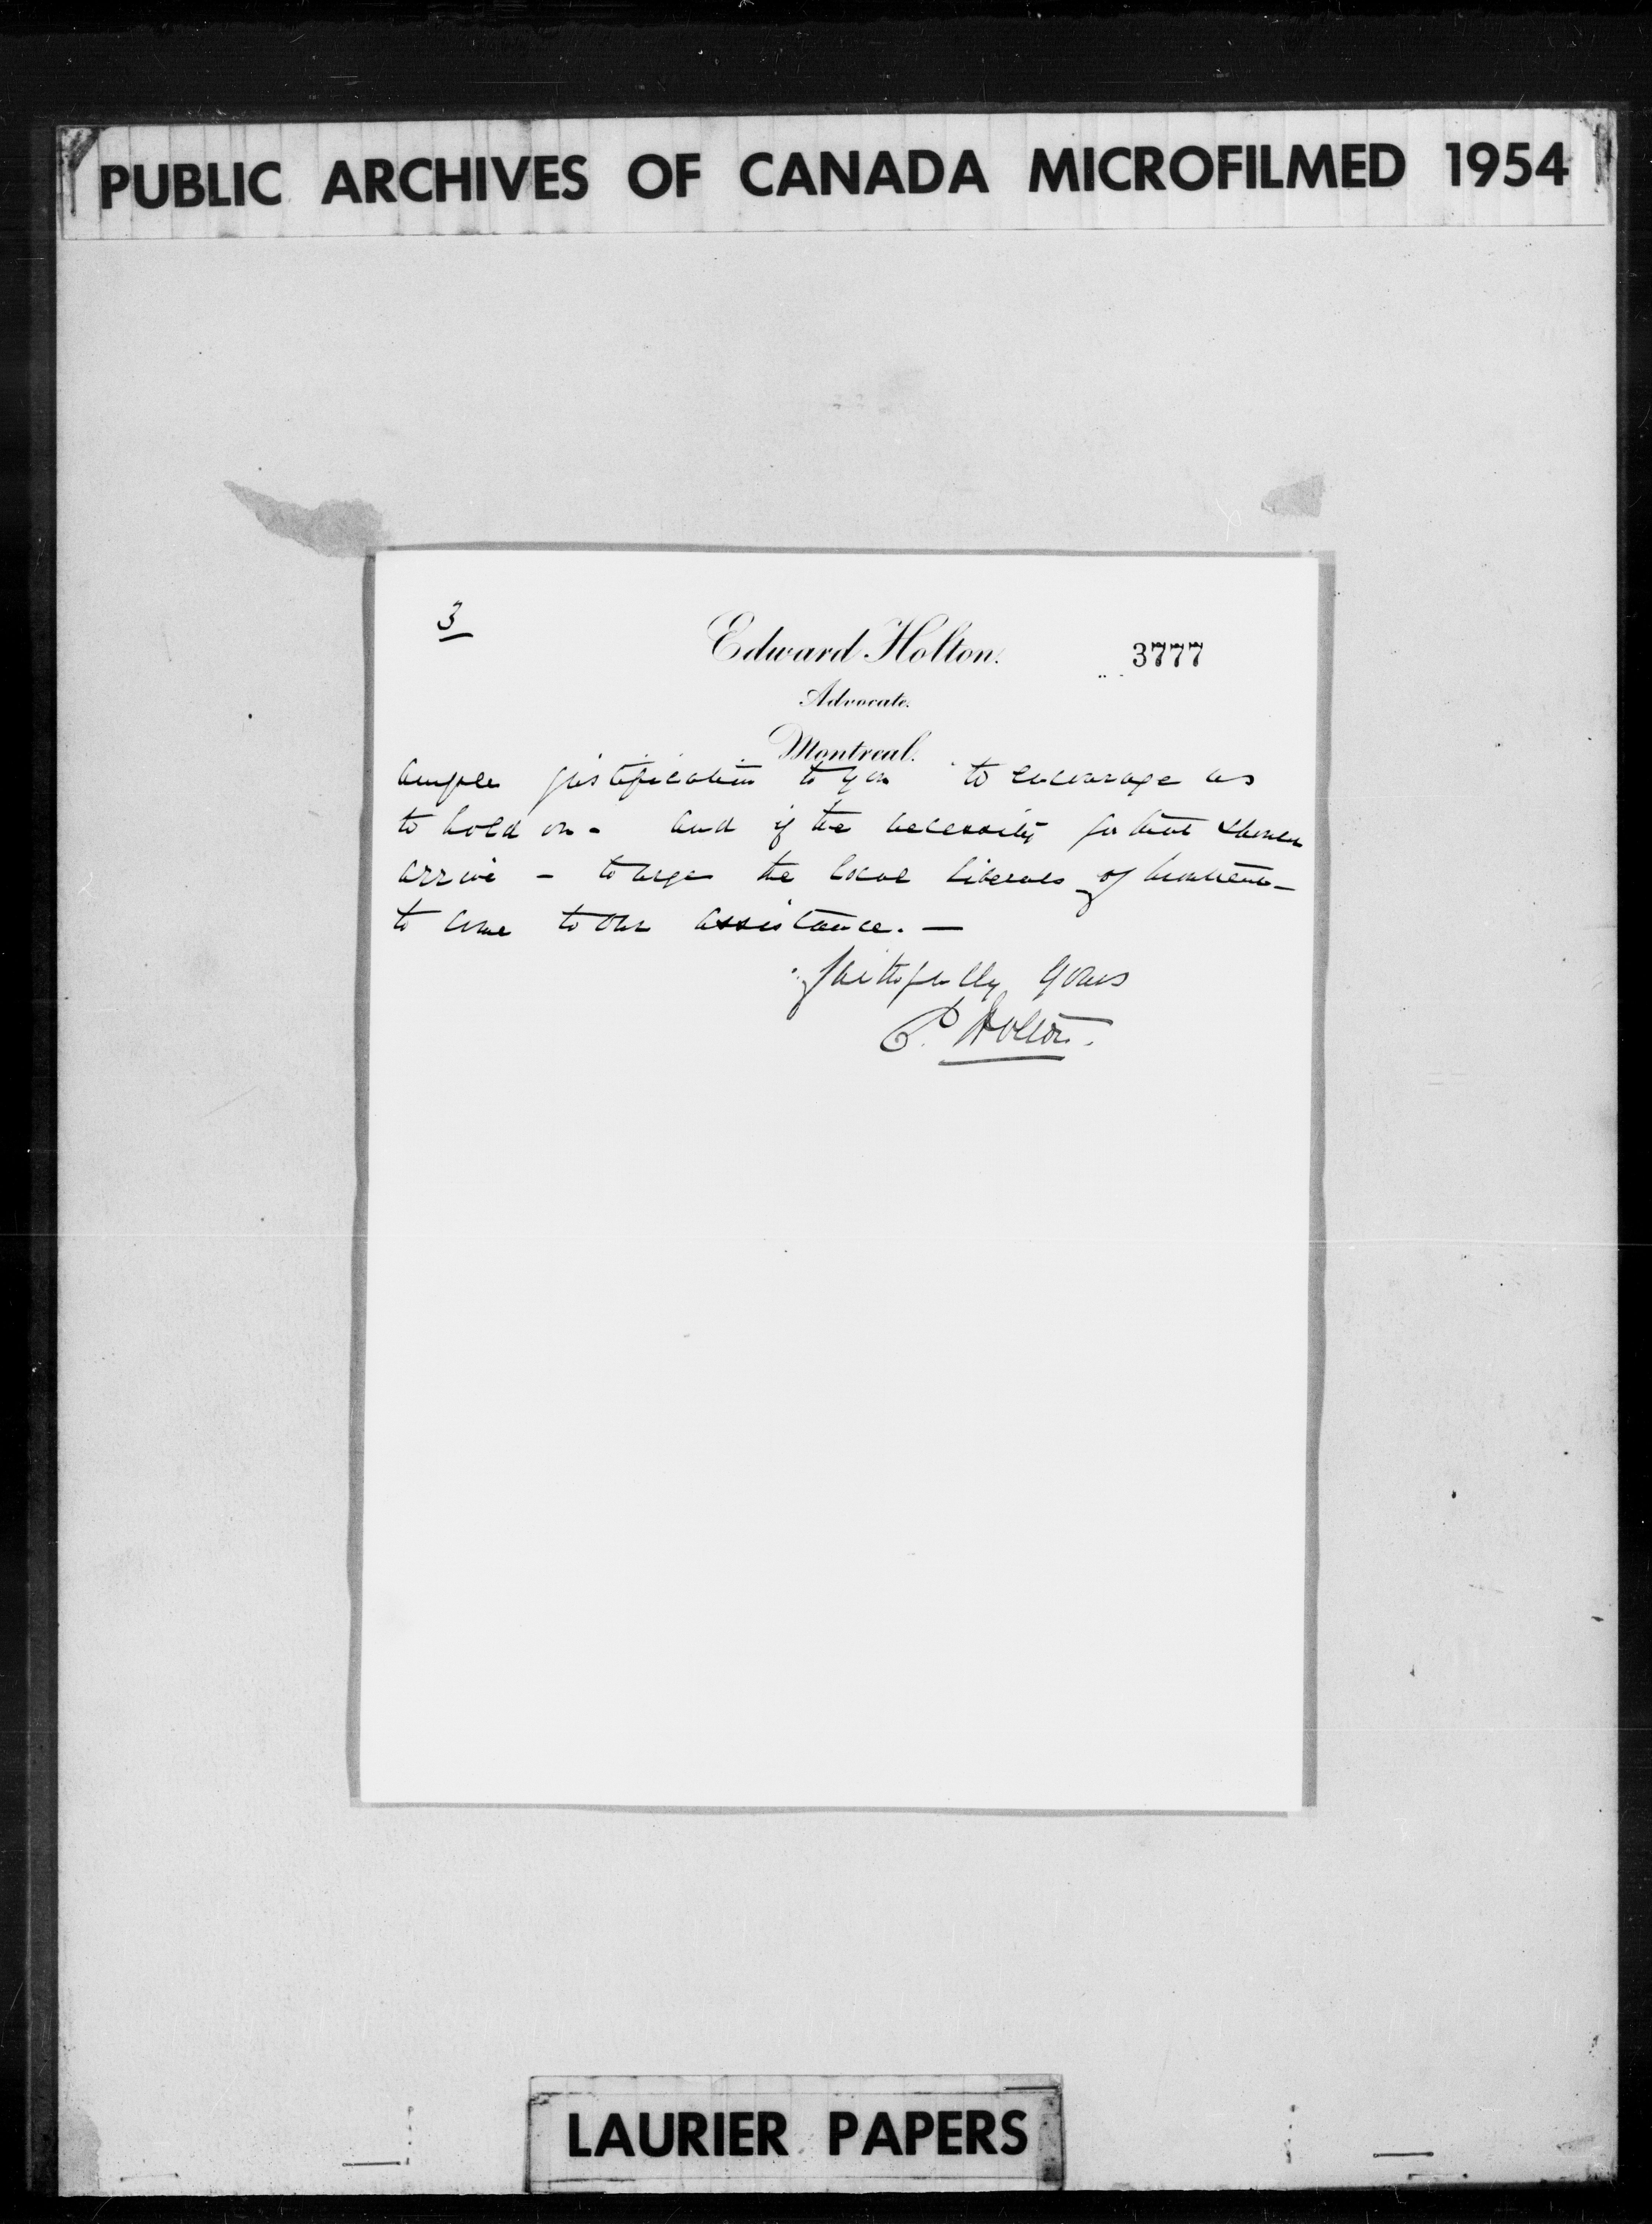 PUBLIC ARCHIVES OF CANADA MICROFILMED 1954
3
Edward Holton.
3777
Advocate.
Montreal.
ample justification to you to encourage us
to hold on - and if the necessity for that should
arrive - to urge the local liberals of
to come to our assistance. —
faithfully yours
E. Holton.
LAURIER PAPERS